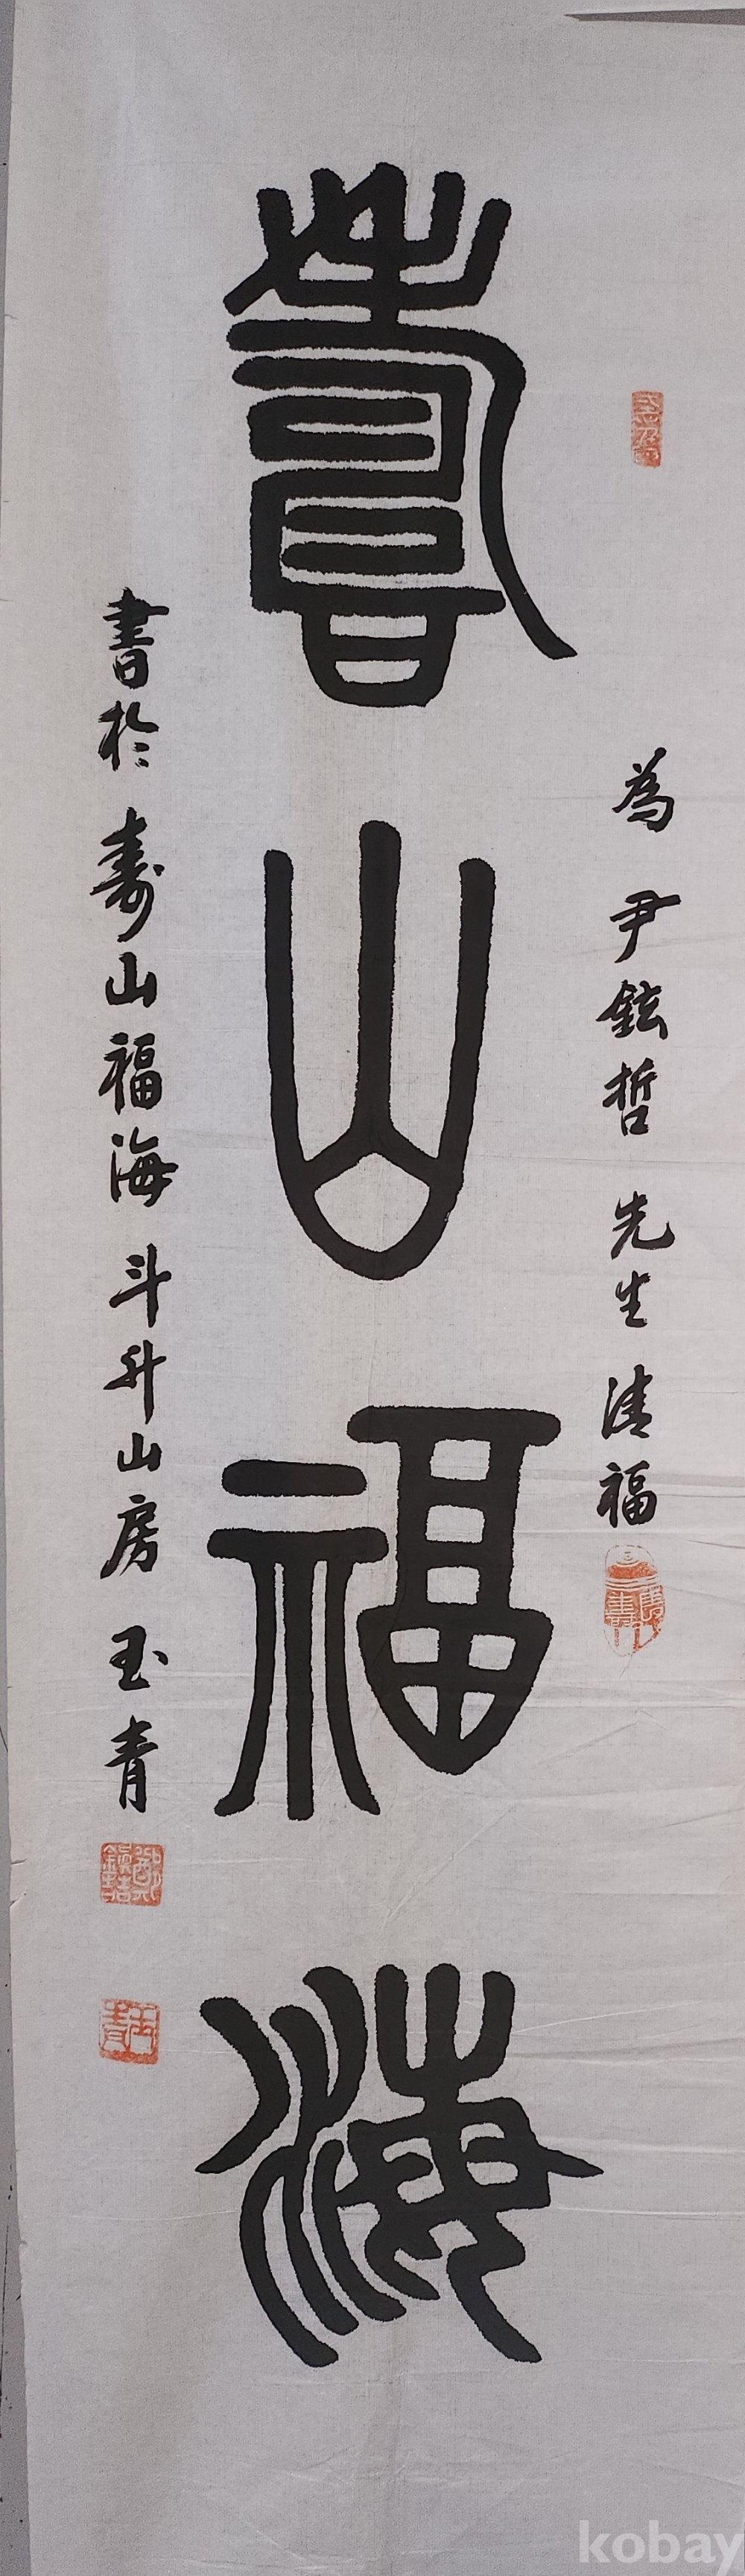 為 尹鉉哲 先生 清福
壽山福海
書於 壽山福海 斗升山房 玉青
玉青
kobay